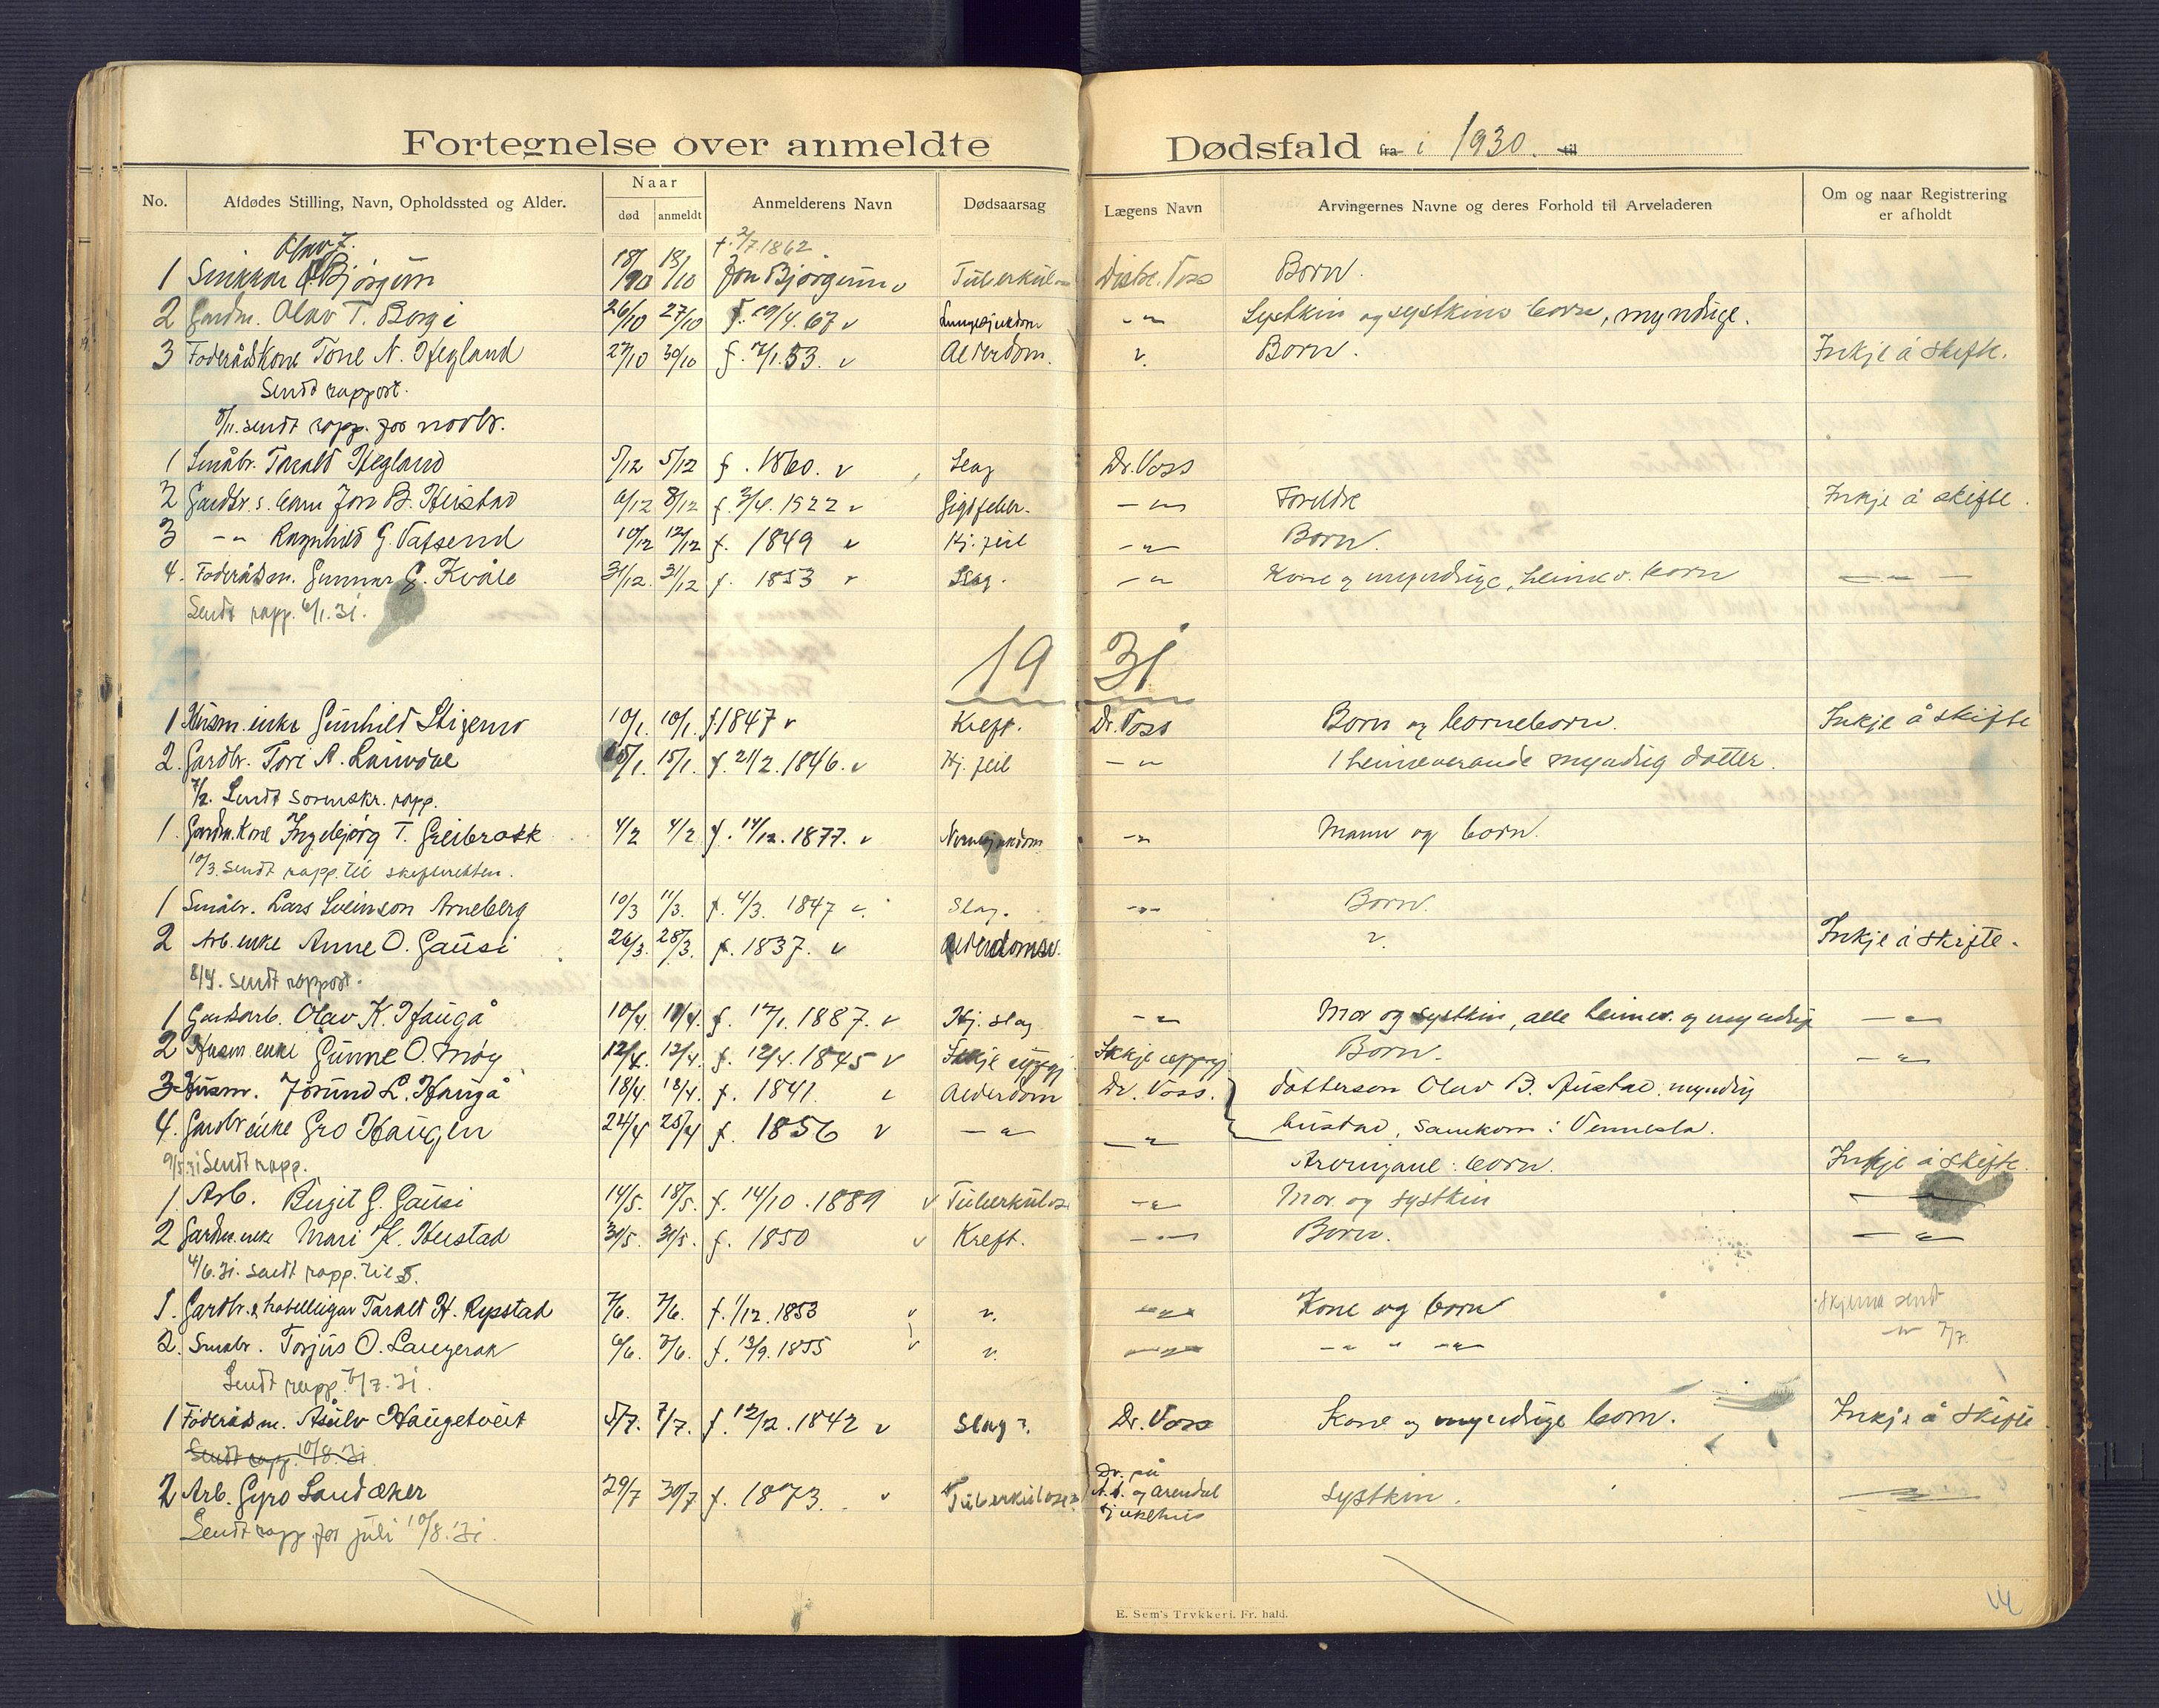 Fortegnelse over anmeldte Dødsfald fra i 1930. til
No. Afdødes Stilling, Navn, Opholdssted og Alder. Naar død anmeldt Anmelderens Navn Dødsaarsag Lægens Navn Arvingernes Navne og deres Forhold til Arveladeren Om og naar Registrering er afholdt
Olav T. f. 2/7.1862
1 Bjørgum 18/10 18/10 Jon Bjørgum v Tuberkulose Distr. Voss Born.
2 Gardm. Olav T. Borgi 26/10 27/10 f. 19/4. 67 v Lungesjukdom -"- Systkin og systkins born, myndige.
3 Føderådskone Tone N. Hegland 27/10 30/10 f. 7/1.53. v Alderdom. v. Born. Inkje å skifte.
Sendt rapport.
8/11. sendt rapp. for novbr.
1 Småbr. Tarald Hegland 5/12 5/12 f. 1860. v Slag Dr. Voss
2 Gardbr.s. barn Jon B. Heistad 6/12 8/12 f. 3/4. 1922 v Gigtfeber. -"- Foreldre Inkje å skifte.
3 -"- Ragnhild G. Tafsend 10/12 12/12 f. 1849 v Hj. feil -"- Born.
4. Føderådsm. Gunnar G. Kvåle 31/12. 31/12 f. 1853 v Slag. -"- Kone og myndige, heimev. born -"-
Sendt rapp. 6/1.31.
1931
1 Husm. enke Gunhild Stigemo 10/1. 10/1. f.1847 v Kreft. Dr. Voss Born og borneborn. Inkje å skifte
2. Gardbr. Tore A. 15/1. 15/1. f. 21/2. 1846. v Hj. feil -"- 1 heimeverande myndig dotter.
7/2. Sendt sorenskr. rapp.
1. Gardm. Kone Ingebjørg T. Greibrokk 4/2 4/2 f. 14/12. 1877. v -"- Mann og born.
10/3. Sendt rapp. til skifteretten.
1 Småbr. Lars Sveinson Arneberg 10/3 11/3. f. 4/3. 1847 v. Slag. -"- Born.
2 Arb. enke Anne O. Gausi 26/3. 28/3. f. 1837. v Alderdomsv. v. Inkje å skifte.
8/4. Sendt rapport.
1 Gardsarb. Olav K. Haugå 10/4. 11/4. f. 17/1. 1887. v Hj. slag -"- Mor og systkin, alle heimev. og myndig -"-
2 Husm. enke Gunne O. Møy 12/4. 12/4. f. 12/4. 1845 v Ikkje oppgj Ikkje oppgj Born. -"-
3 Husm. Jorund L. Haugå 18/4. 18/4. f. 1841. v Alderdom Dr. Voss. } Dotterson Olav B. myndig
4. Gardbr enke Gro Haugen 24/4 25/4 f. 1856 v -"- -"- bustad, Samkom: Vennesla.
9/5.31 Sendt rapp. Arvingane: born. Inkje å skifte.
1. Arb. Birgit G. Gausi 14/5. 18/5. f. 14/10. 1889 v Tuberkulose -"- Mor og systkin -"-
2 Gardm. enke Mari K. Heistad 30/5. 30/5. f. 1850 v Kreft. -"- Born. -"-
4/6.31. Sendt rapp. til S.
1. Gardbr. & hotelleigar Tarald H. Rysstad 7/6. 7/6. f. 1/12. 1853 v v. -"- Kone og born Skjema sendt
2. Småbr. Torjus O. Langerak 6/6. 7/6. f. 13/9. 1855 v v. -"- -"- " -"- 7/7.
Sendt rapp. 6/7. 31.
1 Føderådsm. Åsulv Haugetveit 5/7. 7/7. f. 12/2. 1842 v Slag?. Dr. Voss Kone og myndige born. Inkje å skifte
Sendt rapp. 10/8.31
2 Arb. Gyro Sandåker 29/7 30/7 f. 1873. v Tuberkulose? Dr. på A.A. og Arendal sjukehus systkin. -"-
Sendt rapp. for juli 10/8. 31.
E. Sem's Trykkeri. Fr. hald.
14